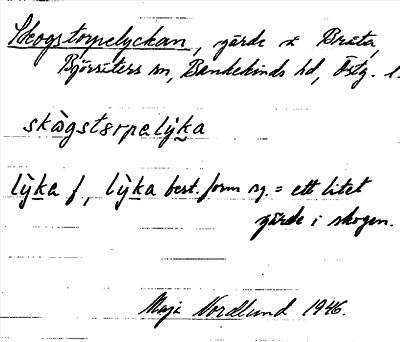 Skogstorpelyckan, gärde i Bråta,
Björsäters sn, Bankekinds hd, Östg. l.
skògstorpelýka
lỳka f, lỳka best. form sg. = ett litet
gärde i skogen.
Maja Nordlund 1946.